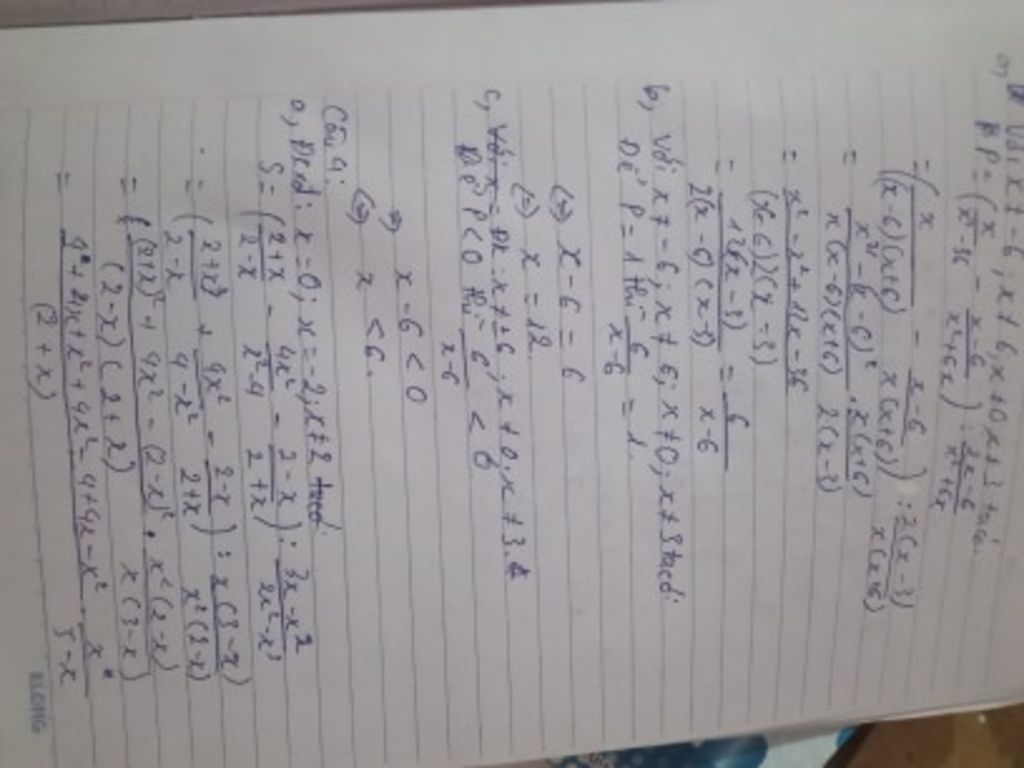 a, Với x ≠ -6; x ≠ 6, x ≠ 0, x ≠ 3 ta có:
P = (x/(x²-36) - (x-6)/(x²+6x)) : (2x-6)/(x²+6x)
= (x/((x-6)(x+6)) - (x-6)/(x(x+6))) : 2(x-3)/(x(x+6))
= (x²-(x-6)²)/(x(x-6)(x+6)) . x(x+6)/(2(x-3))
= (x²-x²+12x-36)/((x-6)2(x-3))
= 12(x-3)/(2(x-6)(x-3)) = 6/(x-6)
b, Với x ≠ -6; x ≠ 6; x ≠ 0; x ≠ 3 ta có:
Để P = 1 thì 6/(x-6) = 1
(=) x - 6 = 6
(=) x = 12
c, ĐK: x ≠ ±6, x ≠ 0, x ≠ 3.
Để P < 0 thì 6/(x-6) < 0
=> x - 6 < 0
(=) x < 6.
Câu 4:
a, Đkxđ: x = 0; x = -2, x ≠ 2
S = ((2+x)/(2-x) - 4x²/(x²-4) - (2-x)/(2+x)) : (3x-x²)/(2x²-x³)
= ((2+x)/(2-x) + 4x²/(4-x²) - (2-x)/(2+x)) : x(3-x)/(x²(2-x))
= ((2+x)² + 4x² - (2-x)²)/((2-x)(2+x)) . x²(2-x)/(x(3-x))
= (4+4x+x²+4x²-4+4x-x²)/(2+x) . x/(3-x)
ELONG